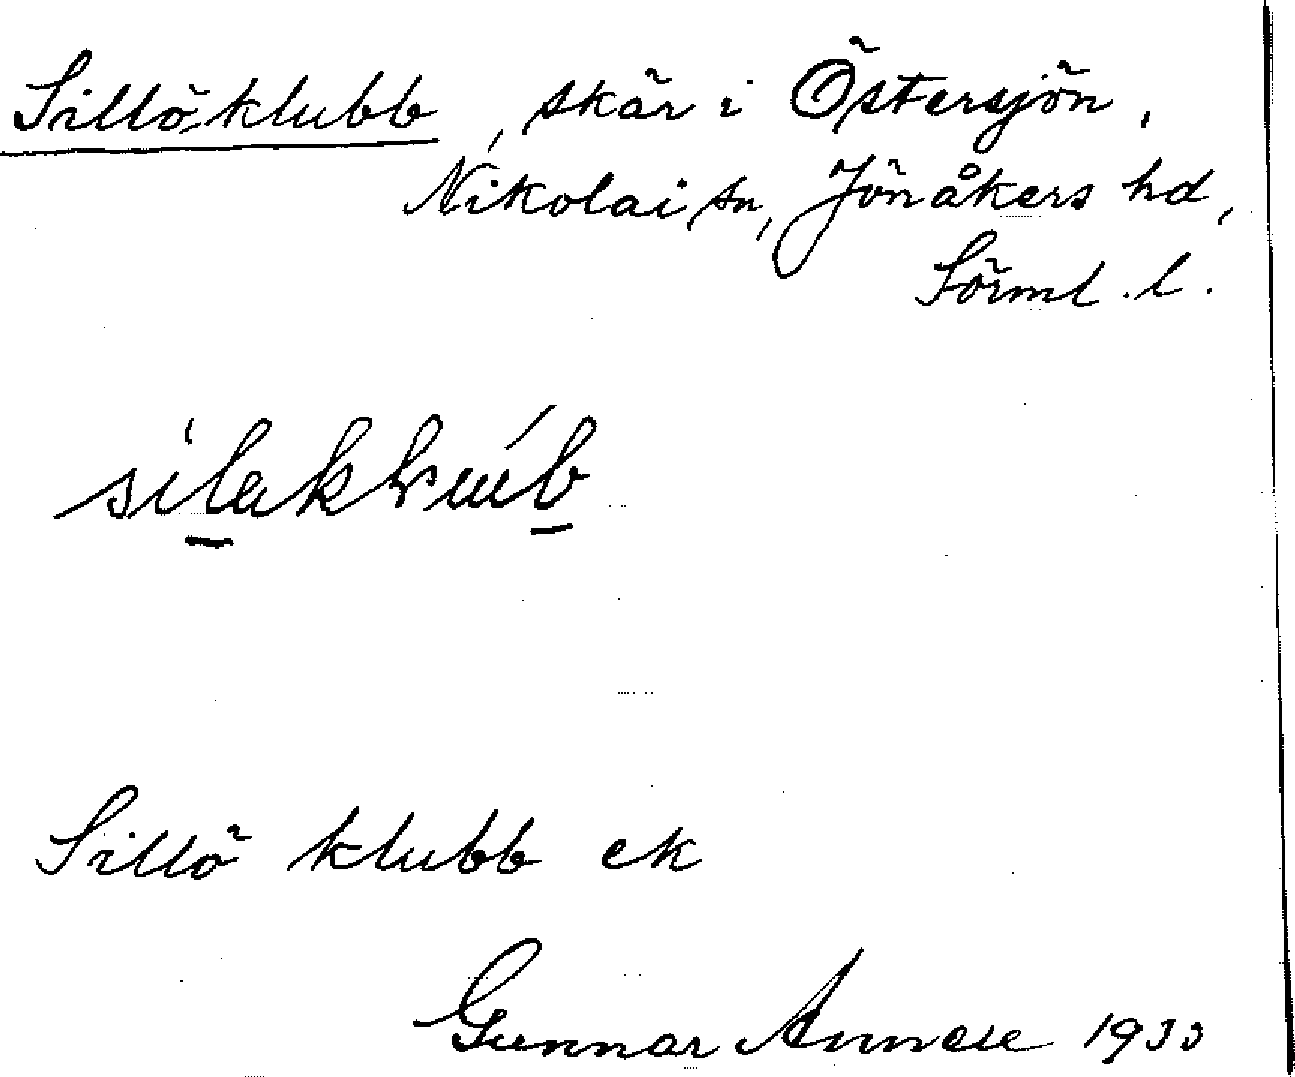 Sillö-klubb, skär i Östersjön,
Nikolai sn, Jönåkers hd,
Sörml. l.
Sillö klubb ek
Gunnar 1933